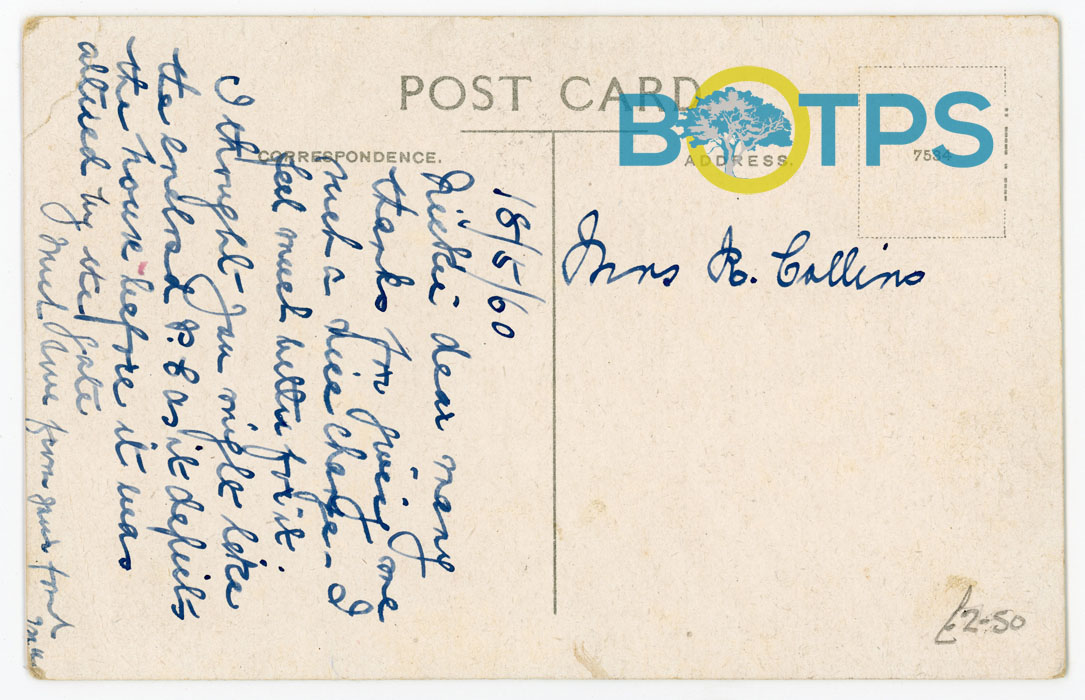 POST CARD
BOTPS
CORRESPONDENCE.
ADDRESS.
7534
18/5/60
Nickie dear many
thanks for giving me
such a nice change - I
feel much better for it.
I thought you might like
the enclosed P.C as it depicts
the house before it was
altered by the gate
Much love from your fond
Mrs R. Collins
£2-50